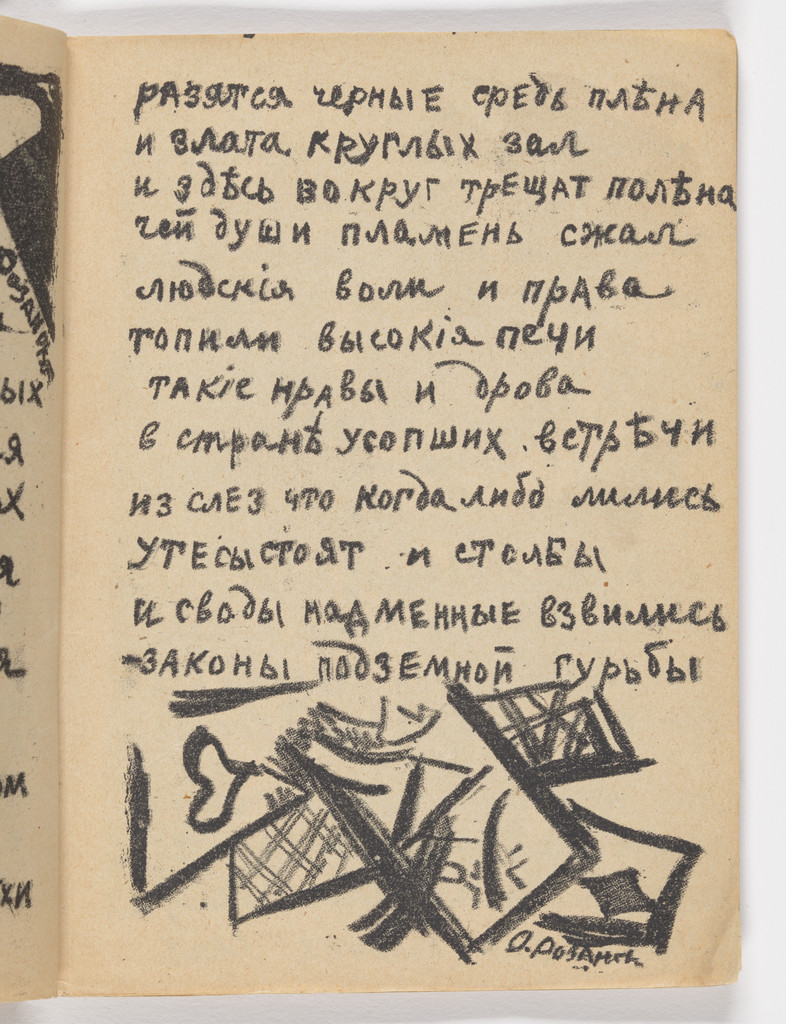 разятся черные средь плѣна
и злата круглых зал
и здѣсь вокруг трещат полѣна
чей души пламень сжал
людскія воли и права
топили высокія печи
такіе нравы и дрова
в странѣ усопших встрѣчи
из слез что когда либо лились
утесы стоят и столбы
и своды надменные взвились
законы подземной гурьбы
ых
я
х
я
я
ом
хи